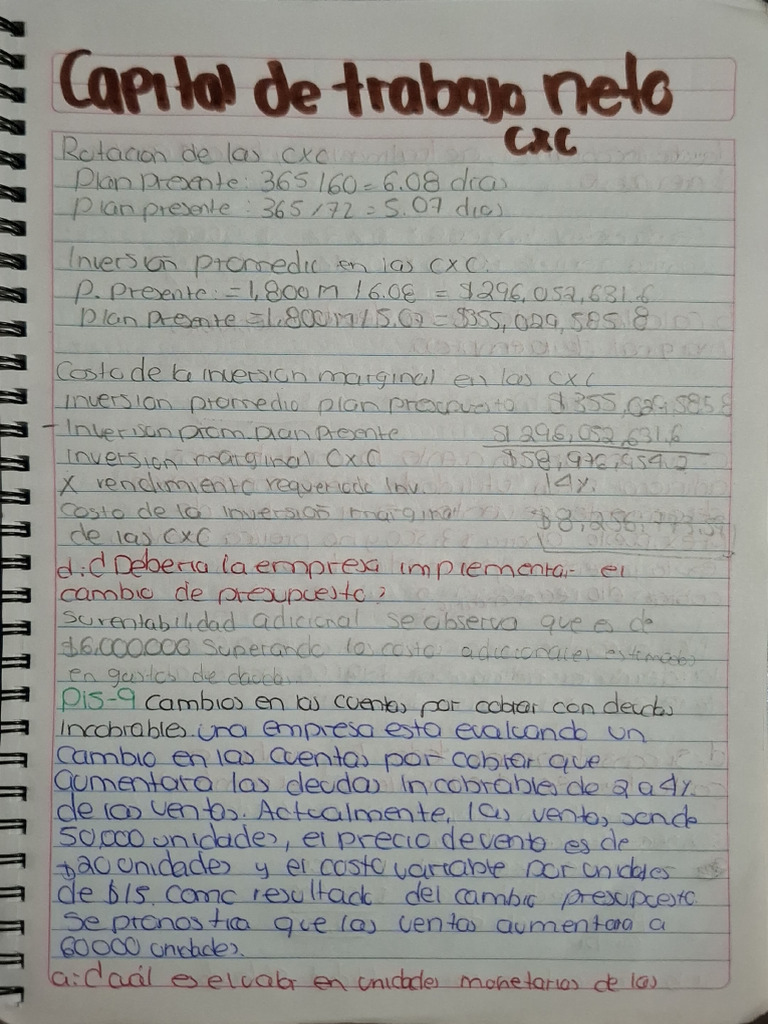 Capital de trabajo neto
CXC
Rotacion de las CXC
Plan presente: 365/60 = 6.08 dias
Plan presente: 365/72 = 5.07 dias
Inversion promedio en las CXC.
P. Presente: = 1,800 M / 6.08 = $296,052,631.6
Plan Presente = 1,800 M / 5.07 = $355,029,585.8
Costo de la inversion marginal en las CXC
Inversion promedio plan presupuesto $355,029,585.8
- Inverison prom. plan Presente $1296,052,631,6
Inversion marginal CXC $58,976,954.2
X rendimiento requerido Inv. 14%.
Costo de la inversion marginal $8,256,773,59
de las CXC
d: ¿Deberia la empresa implementar el
cambio de presupuesto?
Su rentabilidad adicional se observa que es de
$6.000000 superando lo costo adicionales estimados
en gastos de deuda.
P15-9 Cambios en las cuentas por cobrar con deudas
Incobrables. una empresa esta evaluando un
Cambio en las Cuentas por cobrar que
aumentara las deudas Incobrables de 2 a 4%
de las ventas. Actualmente, las ventas son de
50,000 unidades, el precio de venta es de
$20 unidades y el costo variable por unidades
de $15. Como resultado del cambio presupuesto
se pronostica que las ventas aumentara a
60000 unidades.
a: Cuál es el valor en unidades monetarias de las